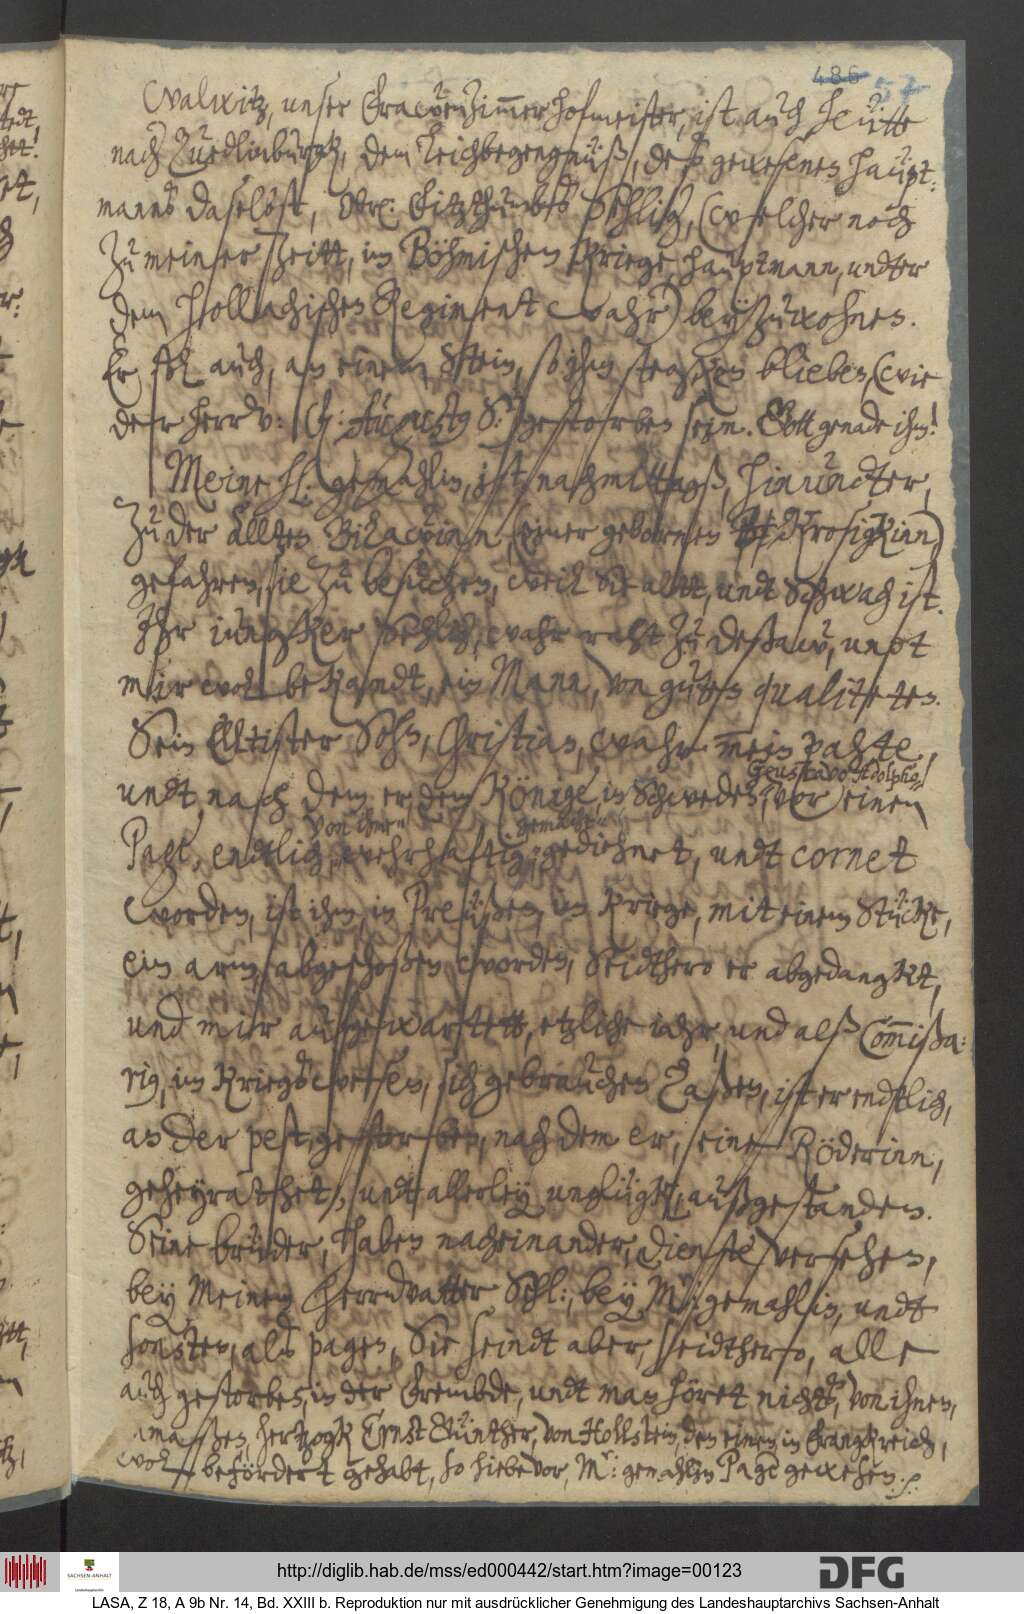 486 57
Walwitz, unser Frawenzimmerhofmeister, ist auch heütte
nach Quedlinburgk, dem Leichbegengnüß, deß gewesenen haüpt-
manns daselbst, Vitzthumbs Sehlig, (welcher noch
zu meiner Zeitt, im Böhmischen Kriege, hauptmann, undter
dem Hollachischen Regiment wahr) beyzuwohnen.
Er soll auch, an einem Stein, so ihm stegken blieben, (wie
der herr v: Augusty S:) gestorben sein. Gott genade ihm!
Meine hl. gemahlin, ist nachmittagß, hinundter,
zu der alten Bilawinn, (einer gebornen Krosigkinn)
gefahren, sie zu besuchen, weil Sie altt, undt Schwach ist.
Ihr iungker Sehlig, wahr raht zu Deßaw, undt
mir wol bekandt, ein Mann, von guten qualiteten.
Sein Eltister Sohn, Christian, wahr mein pahte,
Gustavo Adolpho,
undt nach dem er dem Könige in Schweden, vor einen
von ihme gemacht
Page, endtlich wehrhaftig gediehnet, undt cornet
worden, ist ihm, in Preüßen, im Kriege, mit einem Stügke,
ein arm, abgeschoßen worden, Seidthero er abgedangkt,
und mir aufgewartett, etzliche iahr, und alß Commißa-
rius, im Kriegswesen, sich gebrauchen Laßen, ist er endtlich,
an der pest gestorben, nach dem er, eine Röderinn,
geheyrathet, undt allerley unglügk, außgestanden.
Seine brüder, haben nacheinander, dienste versehen,
bey Meinem Herrnvatter Sehl:, bey M: gemahlin, undt
sonsten, als pagen, Sie seindt aber, seidthero, alle
auch gestorben, in der frembde, undt man höret nichts, von ihnen,
inmaßen, hertzogk Ernst Günther, von Hollstein, den einen in Frangkreich,
wol befördert gehabt, so hiebevor, M: gemahlin Page gewesen.
http://diglib.hab.de/mss/ed000442/start.htm?image=00123
DFG
SACHSEN-ANHALT
LASA, Z 18, A 9b Nr. 14, Bd. XXIII b. Reproduktion nur mit ausdrücklicher Genehmigung des Landeshauptarchivs Sachsen-Anhalt